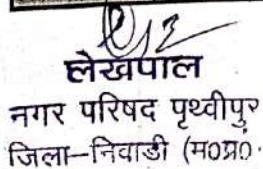 लेखपाल
नगर परिषद पृथ्वीपुर
जिला-निवाडी (म०प्र०.